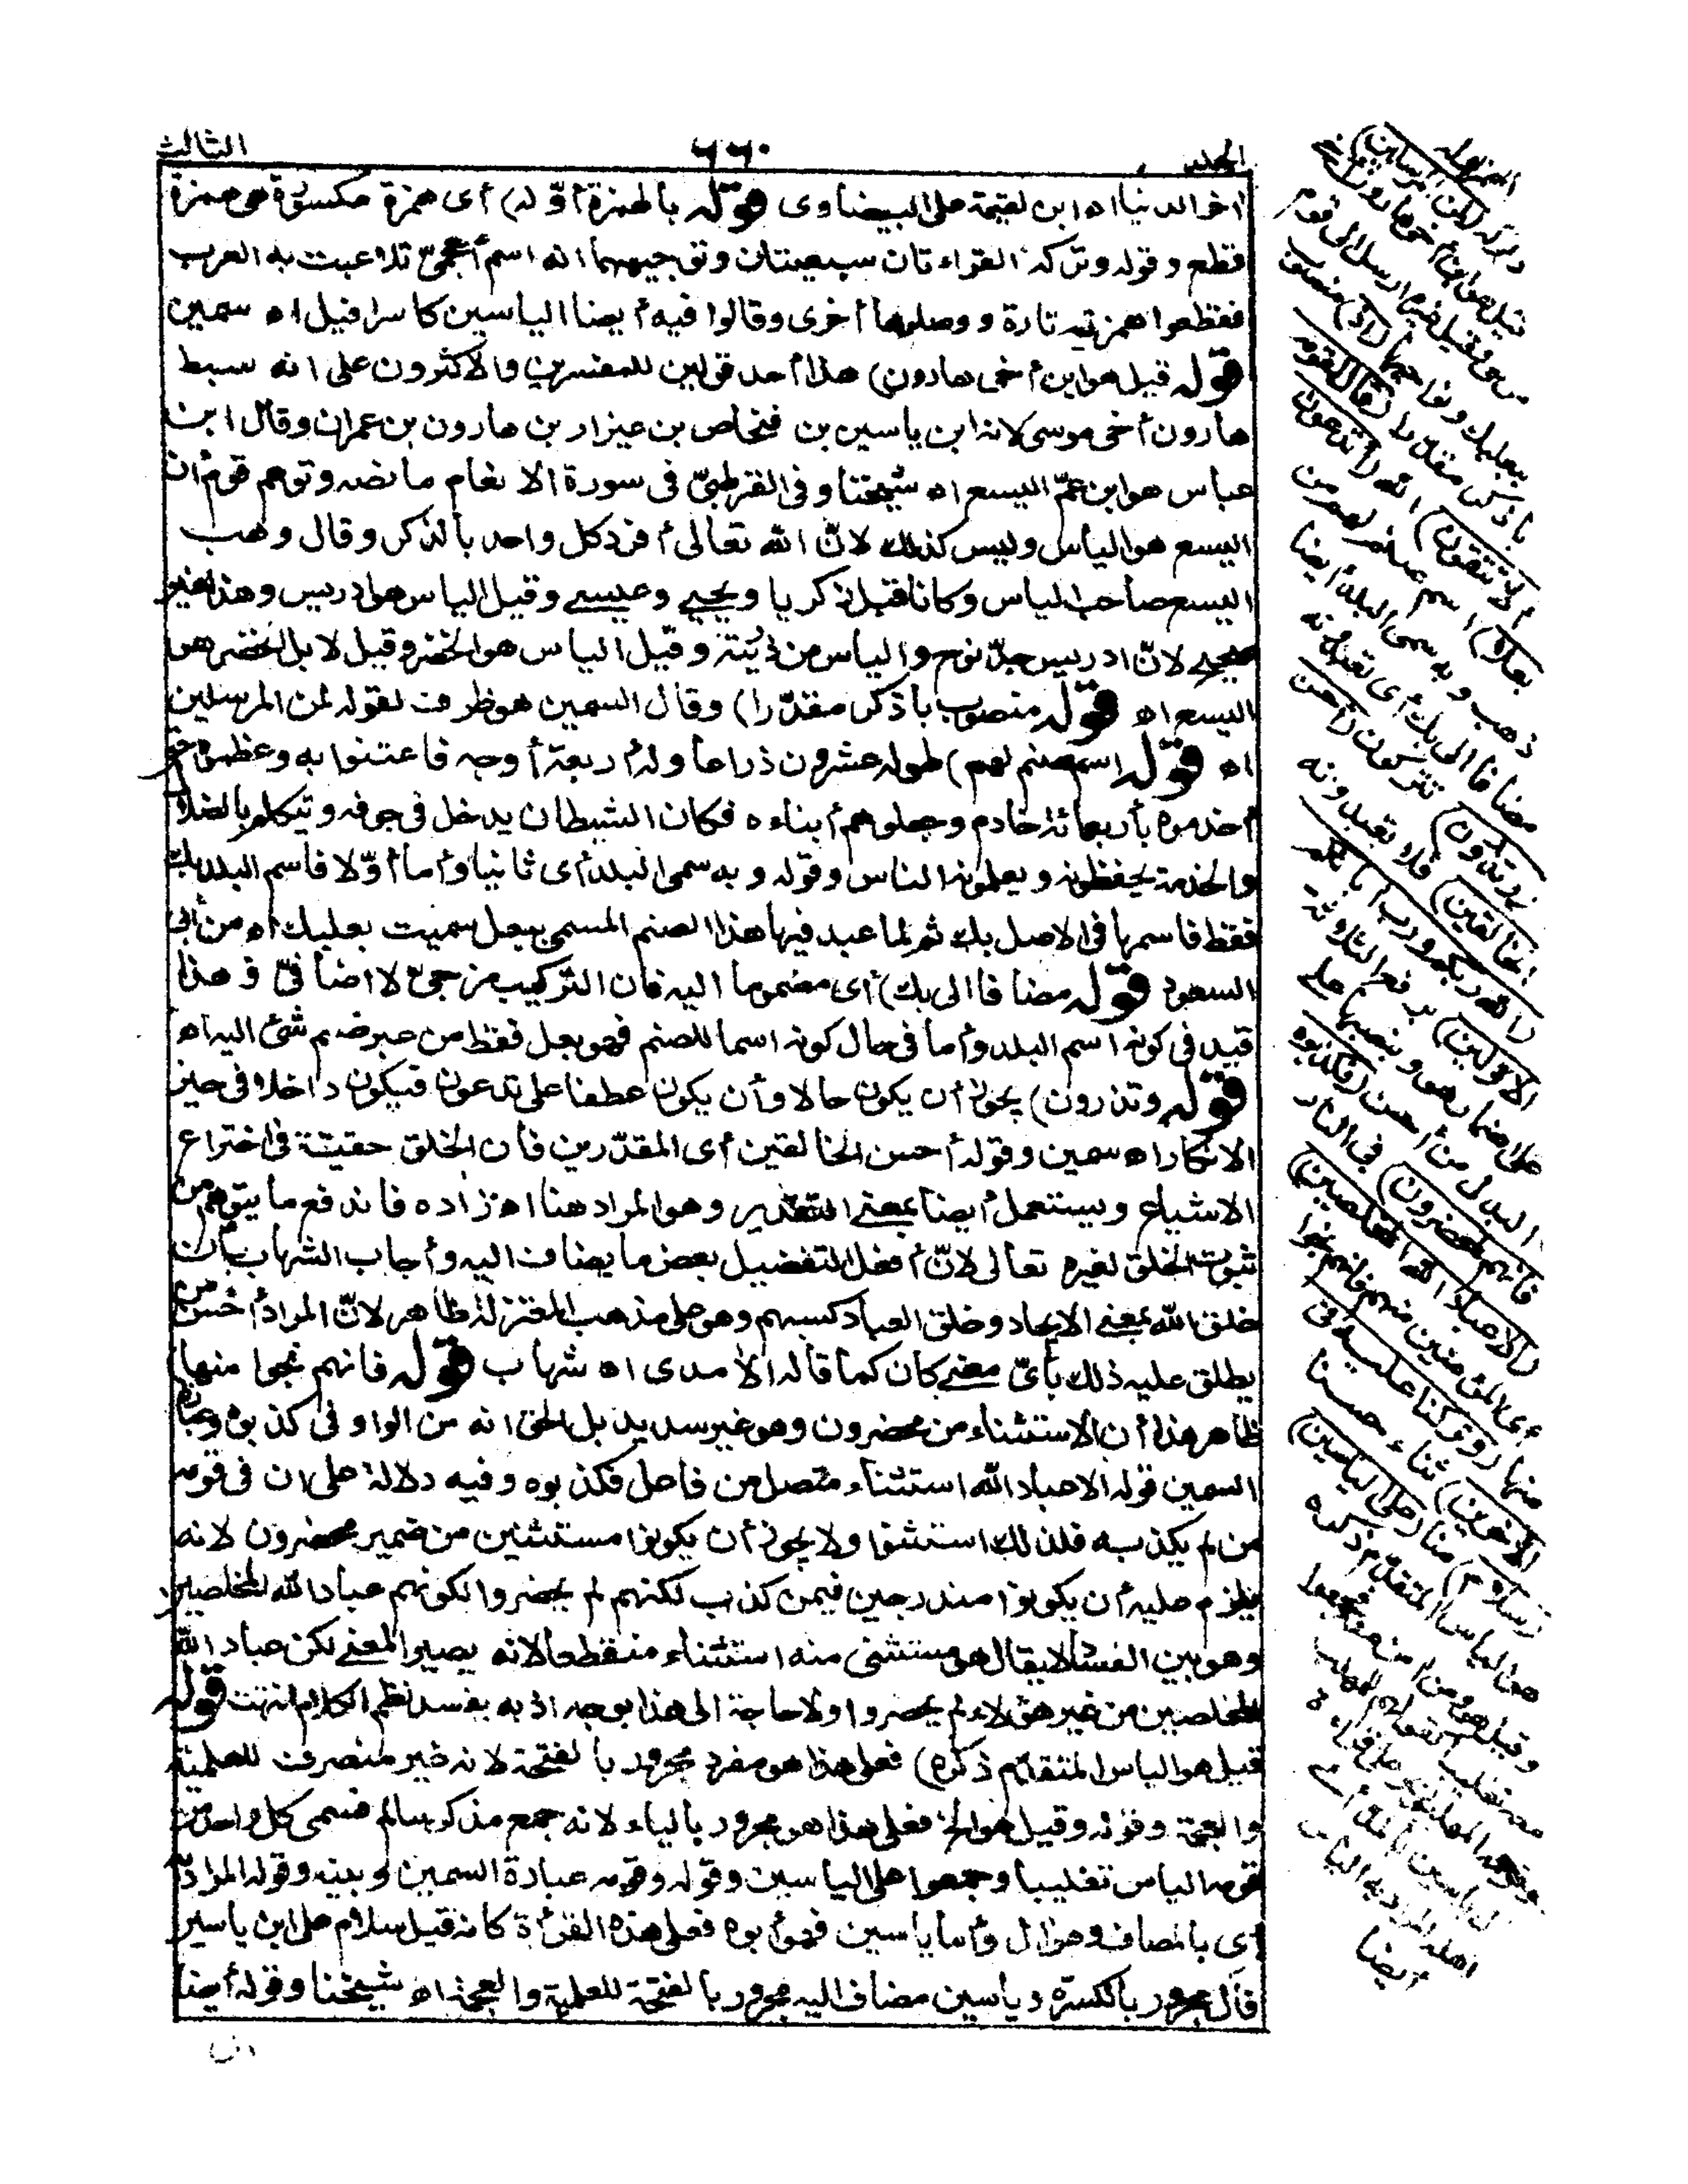 المجلد
٦٦٠
الثالث
آخر الدنيا اه ابن لقيمة على البيضاوى قوله بالهمزة أوّله) أى همزة مكسورة هى همزة
قطع وقوله وتركه القراءتان سبعيتان وتوجيههما انه اسم أعجمىّ تلاعبت به العرب
فقطعوا همزته تارة ووصلوها أخرى وقالوا فيه أيضا الياسين كاسرافيل اه سمين
قوله قيل هو ابن أخى هارون) هذا أحد قولين للمفسرين والاكثرون على انه سبط
هارون أخى موسى لانه ابن ياسين بن فنحاص بن عيزار بن هارون بن عمران وقال ابن
عباس هو ابن عمّ اليسع اه شيخنا وفى القرطبىّ فى سورة الانعام ما نصه وتوهم قوم ان
اليسع هو الياس وليس كذلك لانّ الله تعالى أفرد كل واحد بالذكر وقال وهب
اليسع صاحب الياس وكانا قبل زكريا ويحيى وعيسى وقيل الياس هو ادريس وهذا غير
صحيح لانّ ادريس جدّ نوح والياس من ذريّته وقيل الياس هو الخضر وقيل لا بل الخضر هو
اليسع اه قوله منصوب باذكر مقدّرا) وقال السمين هو ظرف لقوله لمن المرسلين
اه قوله اسم صنم لهم) طوله عشرون ذراعا وله أربعة أوجه فاعتنوا به وعظموه حتى
أخدموه بأربعمائة خادم وجعلوهم أبناءه فكان الشيطان يدخل فى جوفه ويتكلم بالضلال
والخدمة يحفظونه ويعلمونه الناس وقوله وبه سمى البلد أى ثانيا وأما أوّلا فاسم البلد بك
فقط فاسمها فى الاصل بك ثم لما عبد فيها هذا الصنم المسمى ببعل سميت بعلبك اه من أبى
السعود قوله مضافا الى بك) أى مضموما اليه فان التركيب مزجىّ لا اضافىّ وهذا
قيد فى كونه اسم البلد وأما فى حال كونه اسما للصنم فهو بعل فقط من غير ضم شئ اليه اه
قوله وتذرون) يجوز أن يكون حالا وأن يكون عطفا على تدعون فيكون داخلا فى حيز
الانكار اه سمين وقوله أحسن الخالقين أى المقدّرين فان الخلق حقيقة فى اختراع
الاشياء ويستعمل أيضا بمعنى التقدير وهو المراد هنا اه زاده فاندفع ما يتوهم من
ثبوت الخلق لغيره تعالى لانّ أفعل التفضيل بعض ما يضاف اليه وأجاب الشهاب بأن
خلق الله بمعنى الايجاد وخلق العباد كسبهم وهو على مذهب المعتزلة ظاهر لانّ المراد أحسن من
يطلق عليه ذلك بأىّ معنى كان كما قاله الآمدى اه شهاب قوله فانهم نجوا منها)
ظاهر هذا أن الاستثناء من محضرون وهو غير سديد بل الحق انه من الواو فى كذبوه وعبارة
السمين قوله الا عباد الله استثناء متصل من فاعل فكذبوه وفيه دلالة على ان فى قومه
من لم يكذب به فلذلك استثنوا ولا يجوز أن يكونوا مستثنين من ضمير محضرون لانه
يلزم عليه أن يكونوا مندرجين فيمن كذب لكنهم لم يحضروا لكونهم عباد الله المخلصين
وهو بين الفساد لا يقال هو مستثنى منه استثناء منقطعا لانه يصير المعنى لكن عباد الله
المخلصين من غير هؤلاء لم يحضروا ولا حاجة الى هذا بوجه اذ به يفسد نظم الكلام انتهت قوله
قيل هو الياس المتقدّم ذكره) فعلى هذا هو مفرد مجرور بالفتحة لانه غير منصرف للعلمية
والعجمة وقوله وقيل هو الخ فعلى هذا هو مجرور بالياء لانه جمع مذكر سالم فسمى كل واحد من
قومه الياس تغليبا وجمعوا على الياسين وقوله وقومه عبادة السمين وبنيه وقوله المراد به
أى بالمضاف وهو آل وأما ياسين فهو أبوه فعلى هذه القراءة كانه قيل سلام على ابن ياسين
فآل مجرور بالكسرة وياسين مضاف اليه مجرور بالفتحة للعلمية والعجمة اه شيخنا وقوله أيضا
قيل هو ابن أخى هارون
وقيل غيره ارسل الى قوم
ببعلبك ونواحيها (اذ) منصوب
باذكر مقدرا (قال لقومه
ألا تتقون) الله (أتدعون
بعلا) اسم صنم لهم من
ذهب وبه سمى البلد أيضا
مضافا الى بك أى تعبدونه
(وتذرون) تتركون (أحسن
الخالقين) فلا تعبدونه
(الله ربكم ورب آبائكم
الاوّلين) برفع الثلاثة
على اضمار هو وبنصبها على
البدل من أحسن (فكذبوه
فانهم لمحضرون) فى النار
(الا عباد الله المخلصين)
أى المؤمنين منهم فانهم نجوا
منها (وتركنا عليه فى
الآخرين) ثناء حسنا
(سلام) منا (على الياسين)
هو الياس المتقدّم ذكره
وقيل هو ومن آمن معه فجمعوا
معه تغليبا
آل ياسين بالمدّ أى
أهله المراد به الياس
أيضا